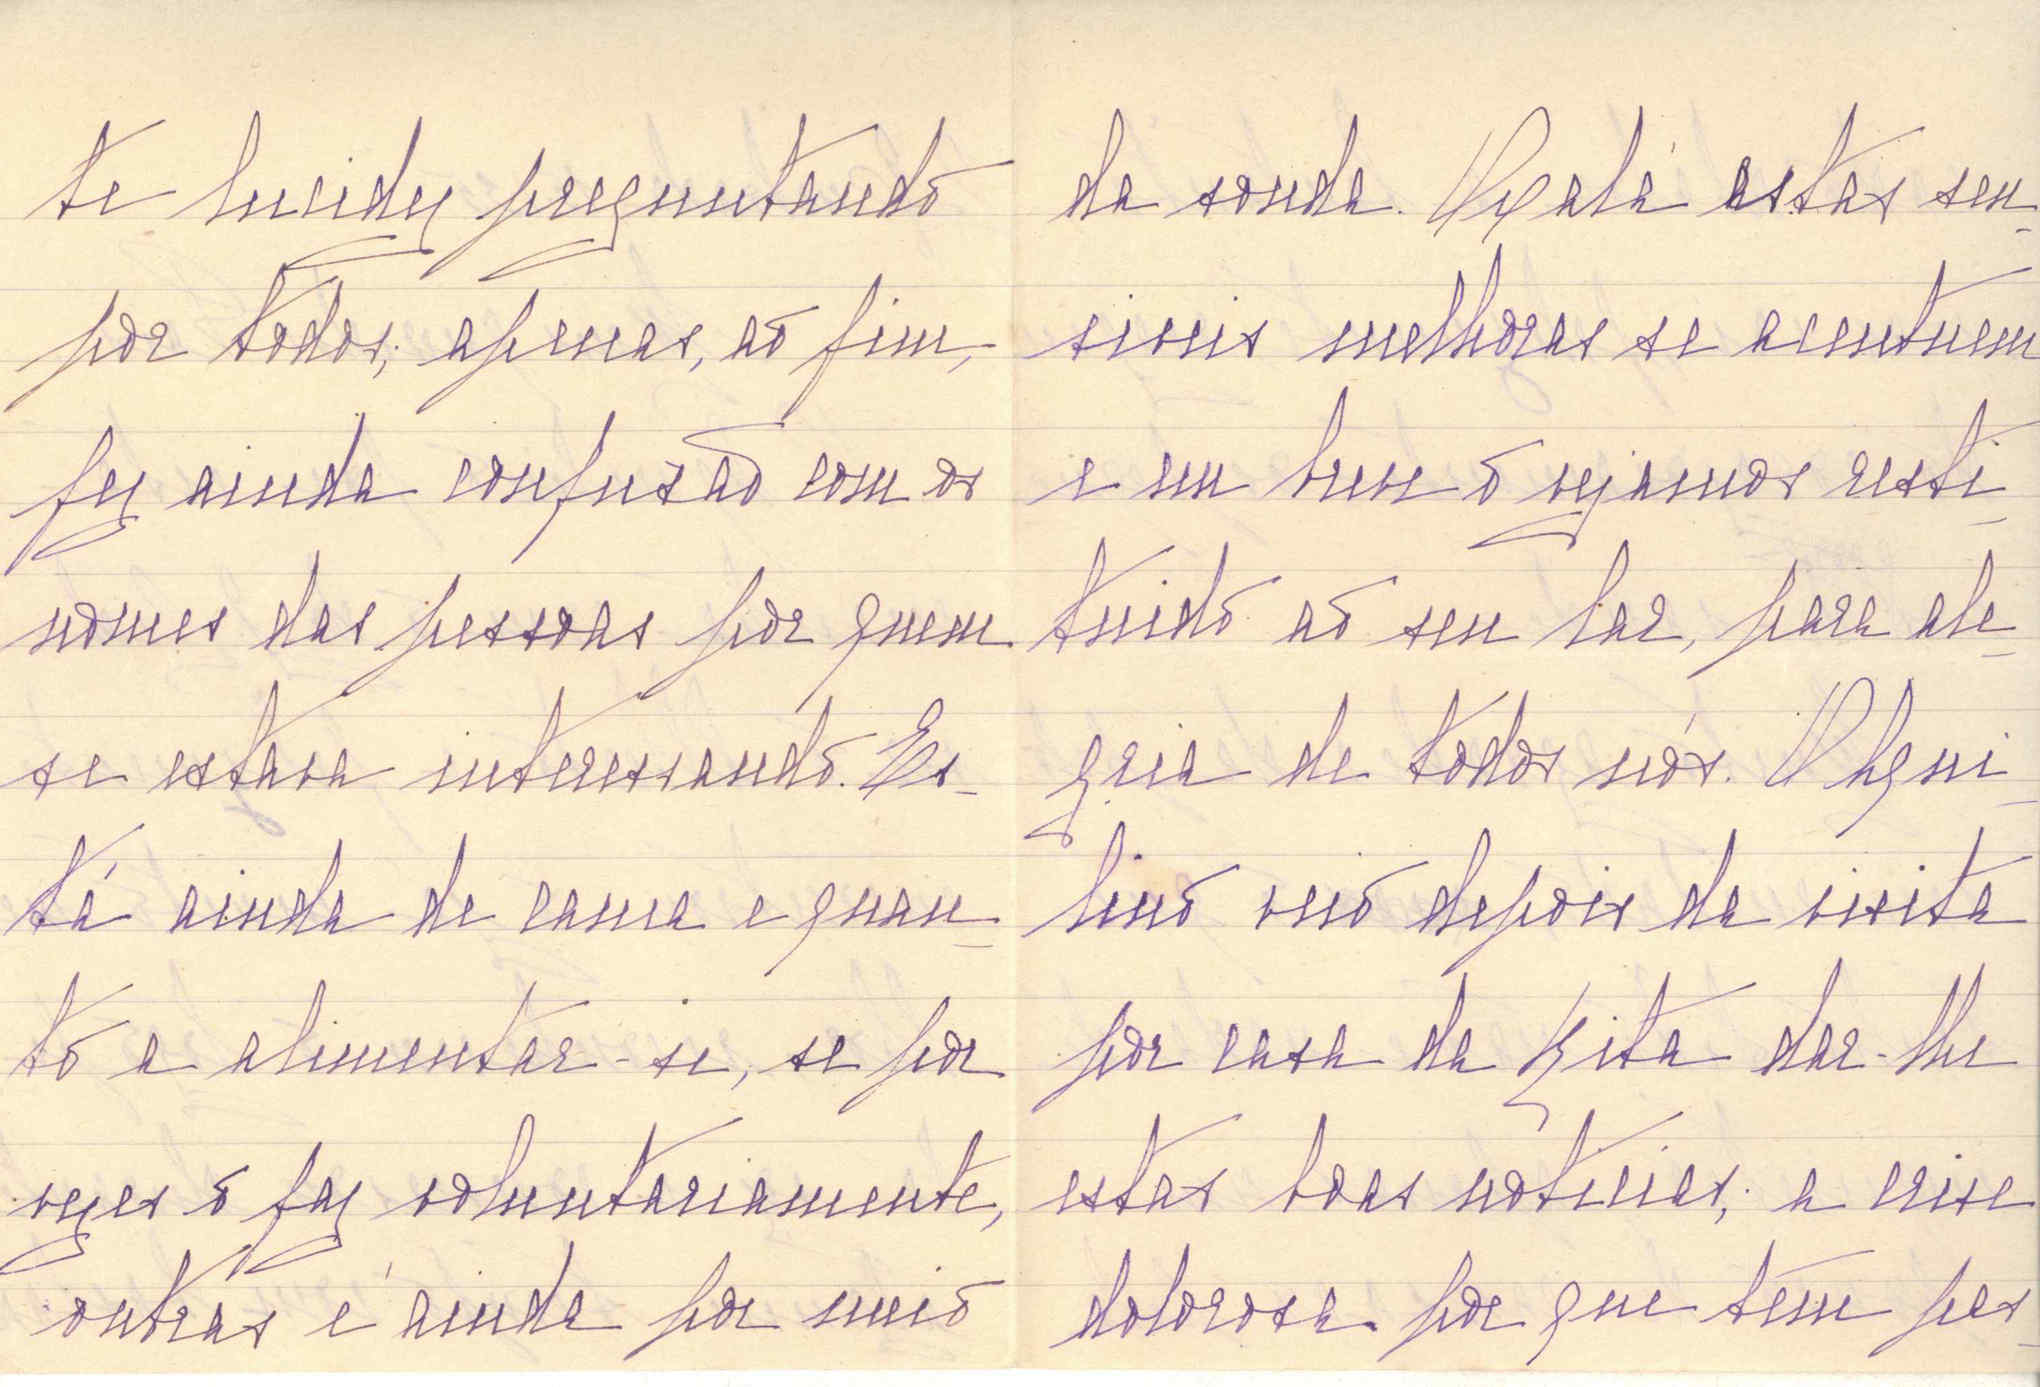 te lucidez preguntando
por todos; apenas, ao fim,
fez ainda confusão com os
nomes das pessoas por quem
se estava interessando. Es-
tá ainda de cama e quan-
to a alimentar-se, se por
vezes o faz voluntariamente,
outras é ainda por meio
da sonda. Oxalá estas sen-
siveis melhoras se acentuem
e em breve o vejamos resti-
tuido ao seu lar, para ale-
gria de todos nós. O Aqui-
lino veio depois da visita
por casa da Zita dar-lhe
estas boas noticias; a crise
dolorosa por que tem pas-